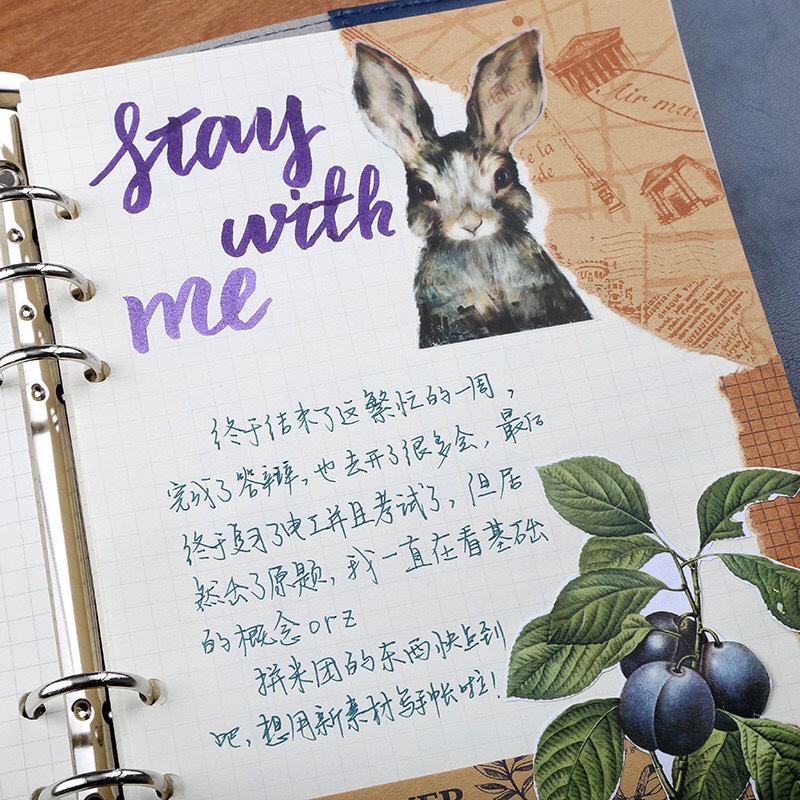 Stay
with
me
Air mai
de la
终于结束了这繁忙的一周，
完成了答辩，也去开了很多会，最后
终于复习了电工并且考试了，但居
然出了原题，我一直在看基础
的概念orz
拼米团的东西快点到
吧，想用新素材写手帐啦！